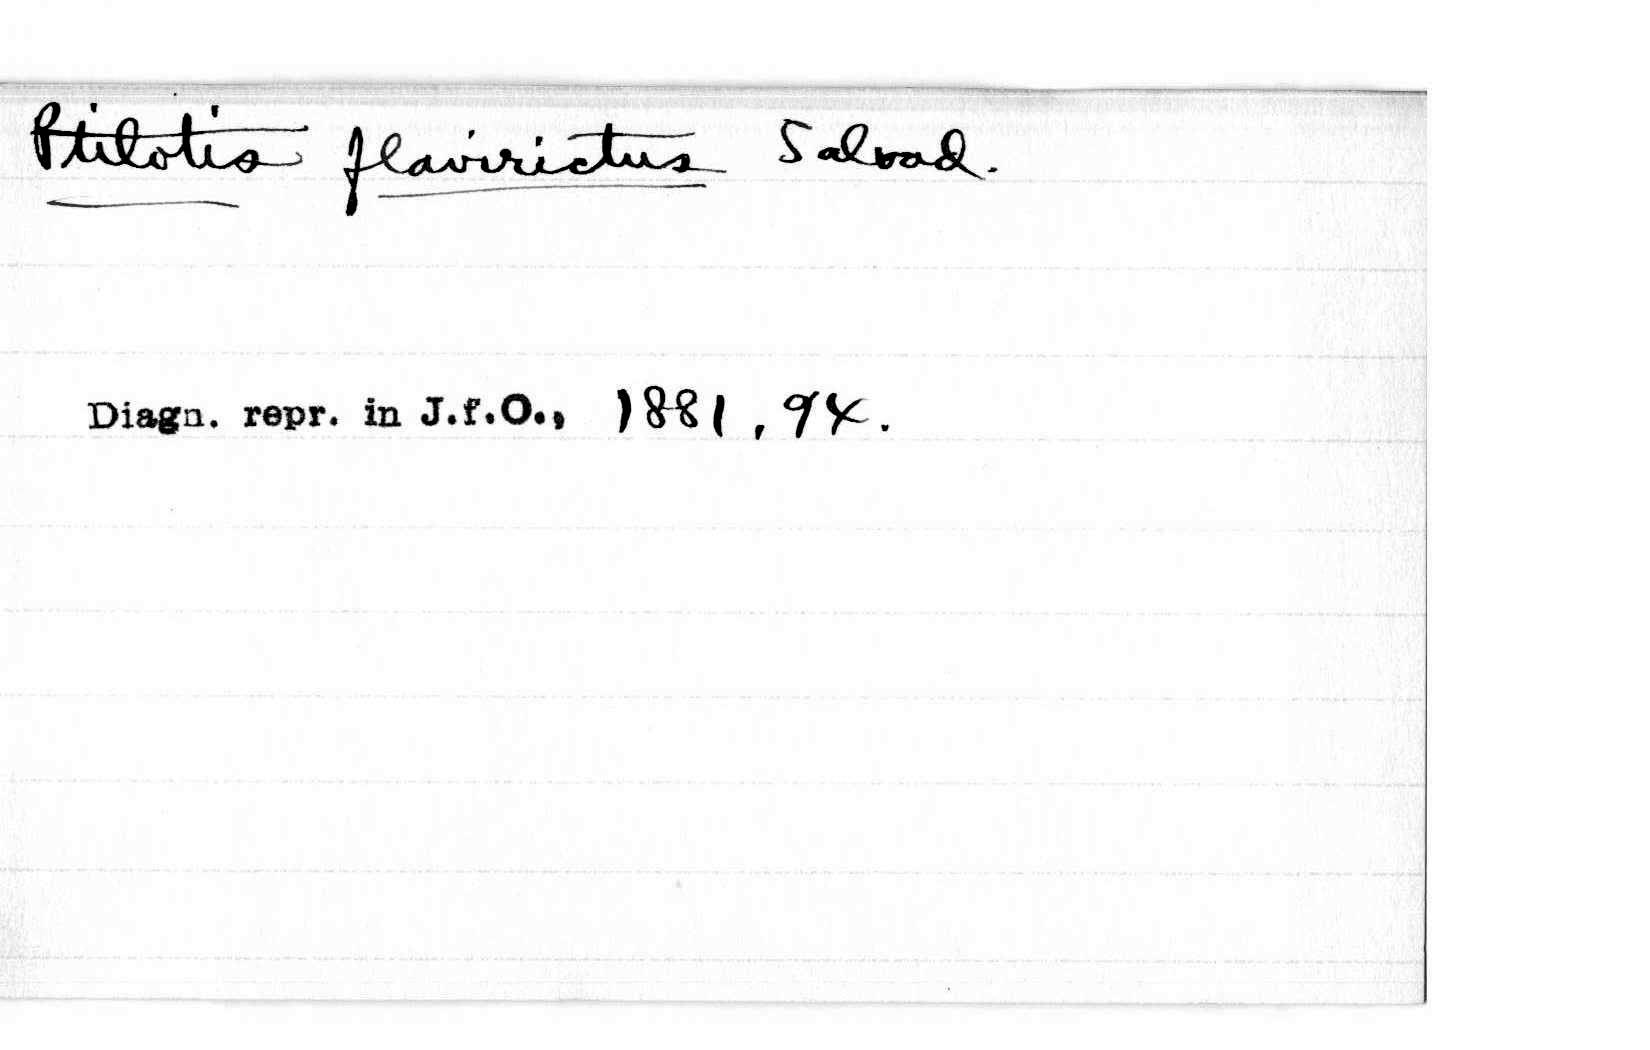 Ptilotis flavirictus Salvad.
Diagn. repr. in J.f.O., 1881, 94.